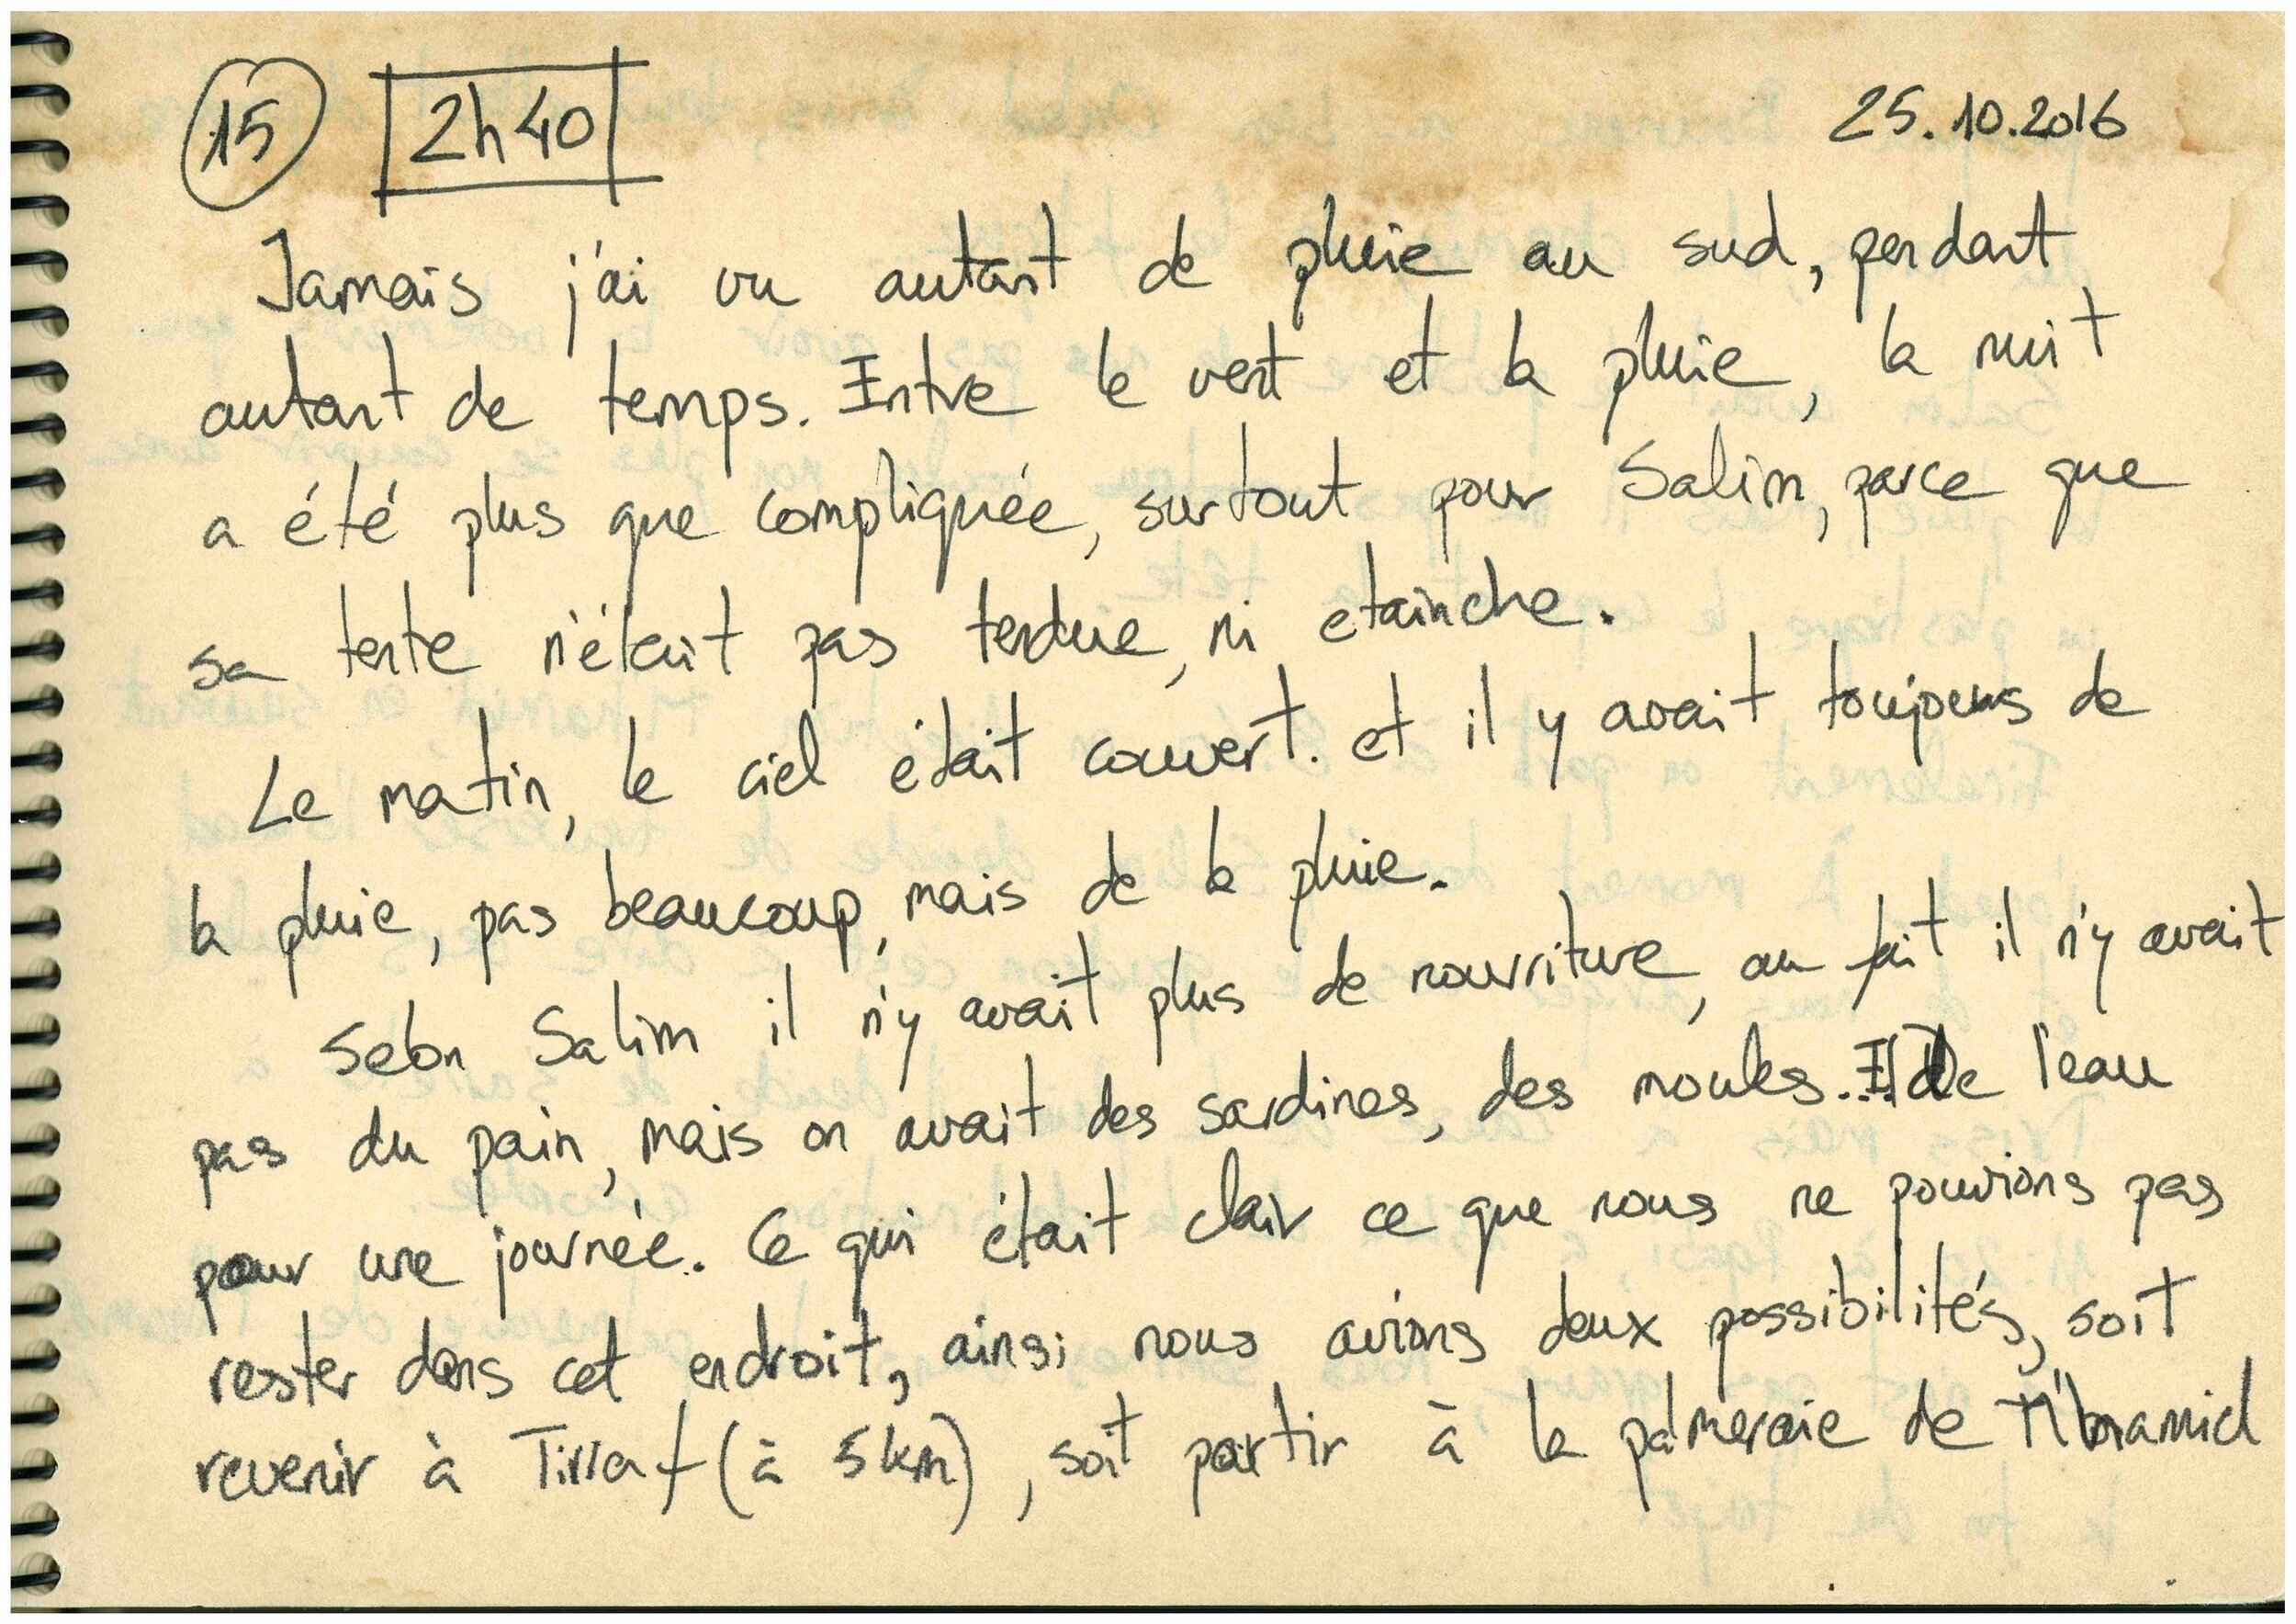 15 2h40 25.10.2016
Jamais j'ai vu autant de pluie au sud, pendant
autant de temps. Entre le vent et la pluie, la nuit
a été plus que compliquée, surtout pour Salim, parce que
sa tente n'était pas tendue, ni etainche.
Le matin, le ciel était couvert. et il y avait toujours de
la pluie, pas beaucoup, mais de la pluie.
Selon Salim il n'y avait plus de nourriture, au fait il n'y avait
pas du pain, mais on avait des sardines, des moules... De l'eau
pour une journée. Ce qui était clair ce que nous ne pouvions pas
rester dans cet endroit, ainsi nous avions deux possibilités, soit
revenir à (à 5 km), soit partir à la palmeraie de